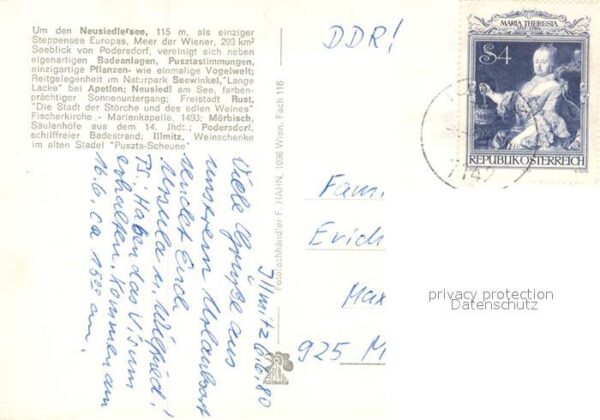 Um den Neusiedlersee, 115 m, als einziger
Steppensee Europas, Meer der Wiener, 293 km²
Seeblick von Podersdorf, vereinigt sich neben
eigenartigen Badeanlagen, Pusztastimmungen,
einzigartige Pflanzen- wie einmalige Vogelwelt;
Reitgelegenheit im Naturpark Seewinkel,"Lange
Lacke" bei Apetlon; Neusiedl am See, farben-
prächtiger Sonnenuntergang; Freistadt Rust,
"Die Stadt der Störche und des edlen Weines"
Fischerkirche - Marienkapelle, 1493; Mörbisch,
Säulenhöfe aus dem 14. Jhdt.; Podersdorf,
schilffreier Badestrand; Illmitz, Weinschenke
im alten Stadel "Puszta-Scheune"
Illmitz 6.6.80
Viele Grüße aus
unserem Urlaubsort
sendet Euch
Ursula u. Wilfried!
PS: Haben das Visum
erhalten. Kommen am
16.6. ca 15⁰⁰ an.
Fotofischhändler F. HANN, 1096 Wien, Fach 116
DDR!
Fam.
Erich
Max
925 M
MARIA THERESIA
S4
REPUBLIK ÖSTERREICH
7142
privacy protection
Datenschutz